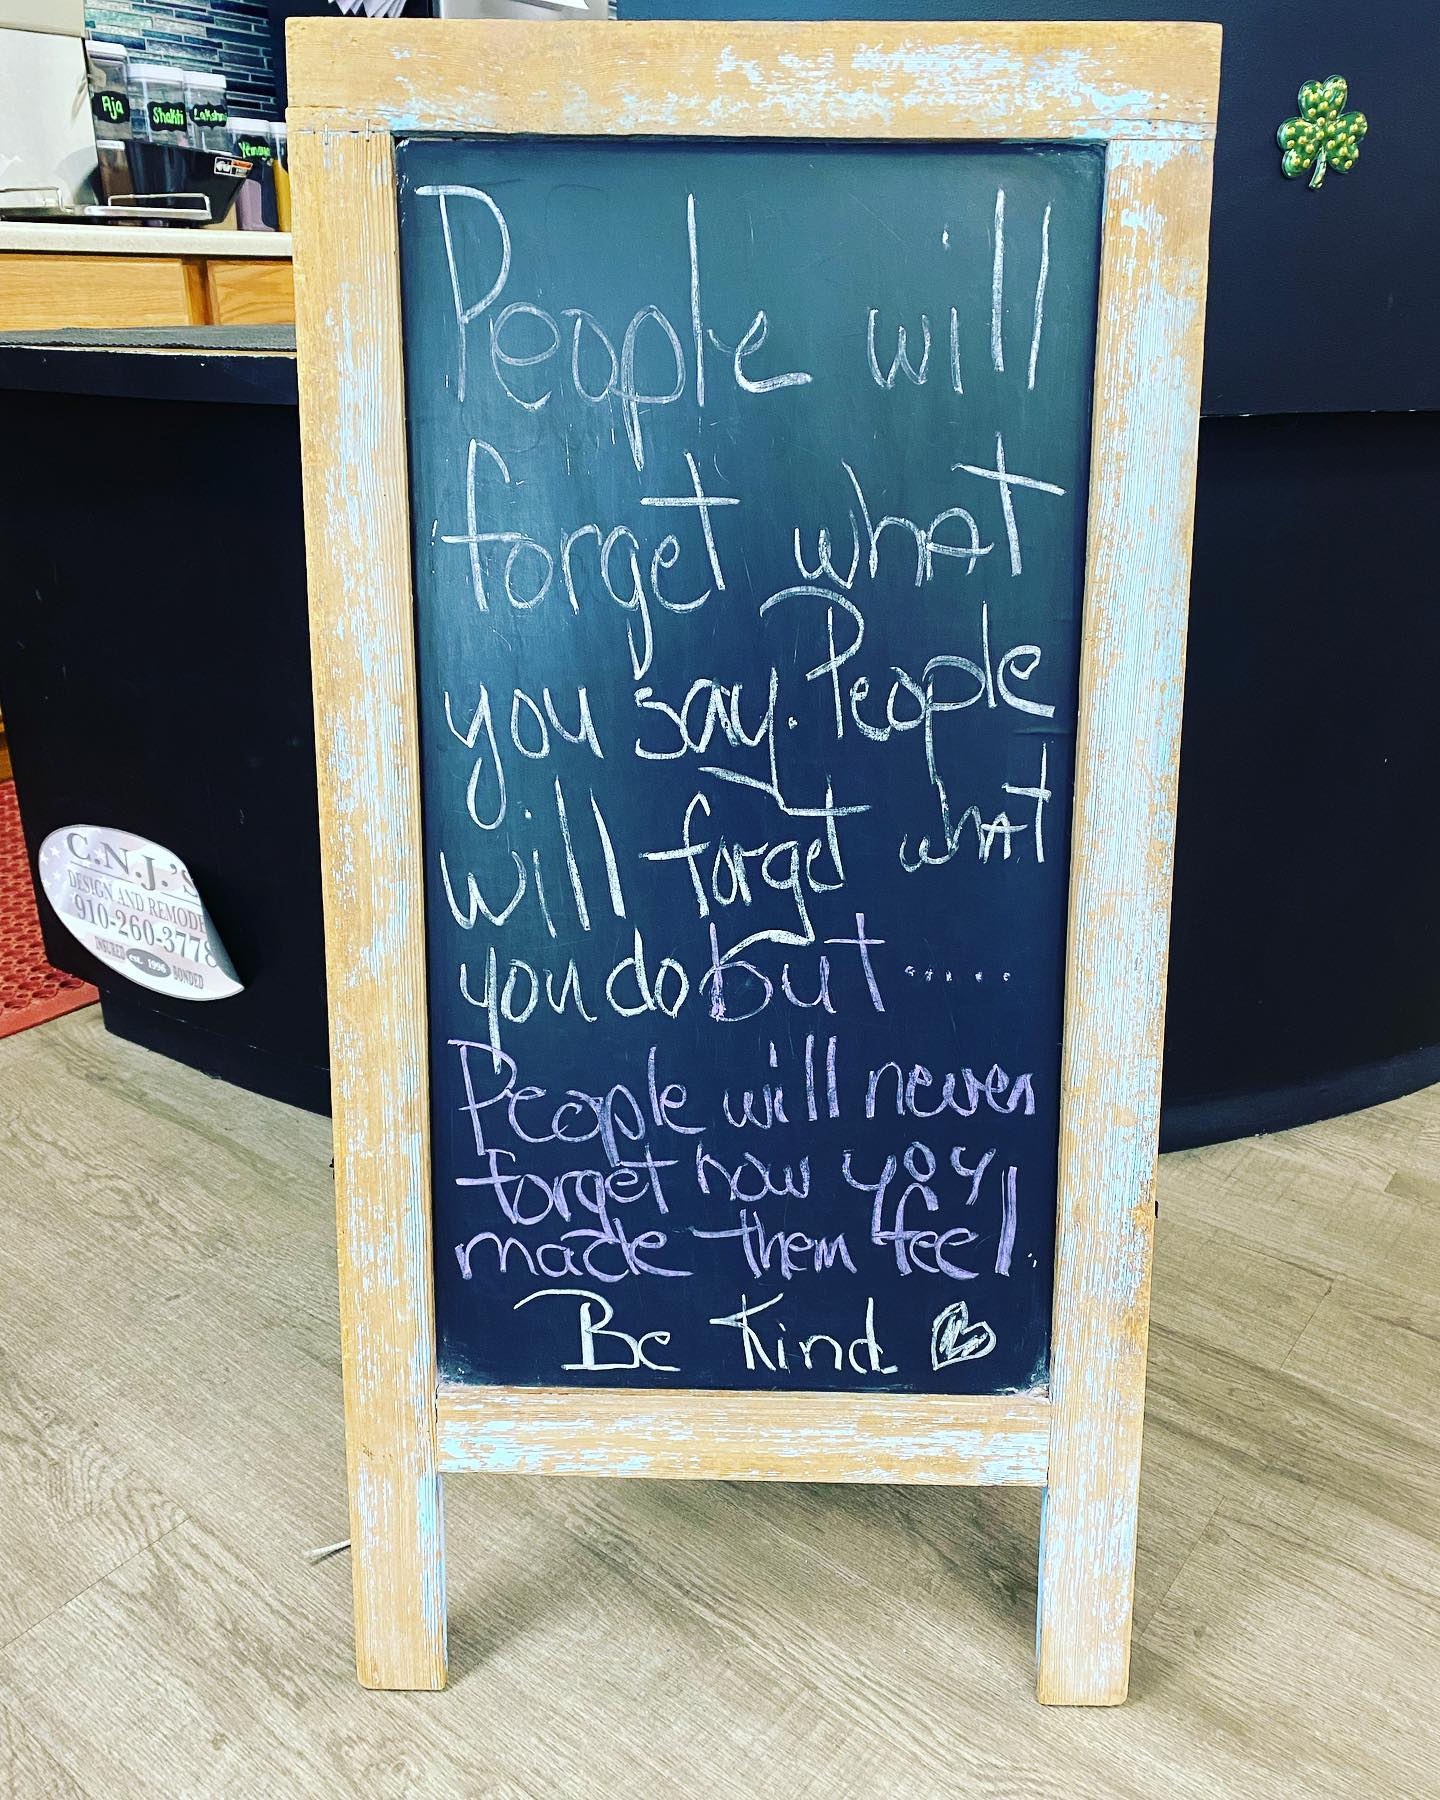 Aja
Shakti
Lakshmi
Yemaya
People will
forget what
you say. People
will forget what
you do but.....
People will never
forget how you
made them feel.
Be Kind
C.N.J.'S
DESIGN AND REMODE
910-260-3778
INSURED est. 1996 BONDED